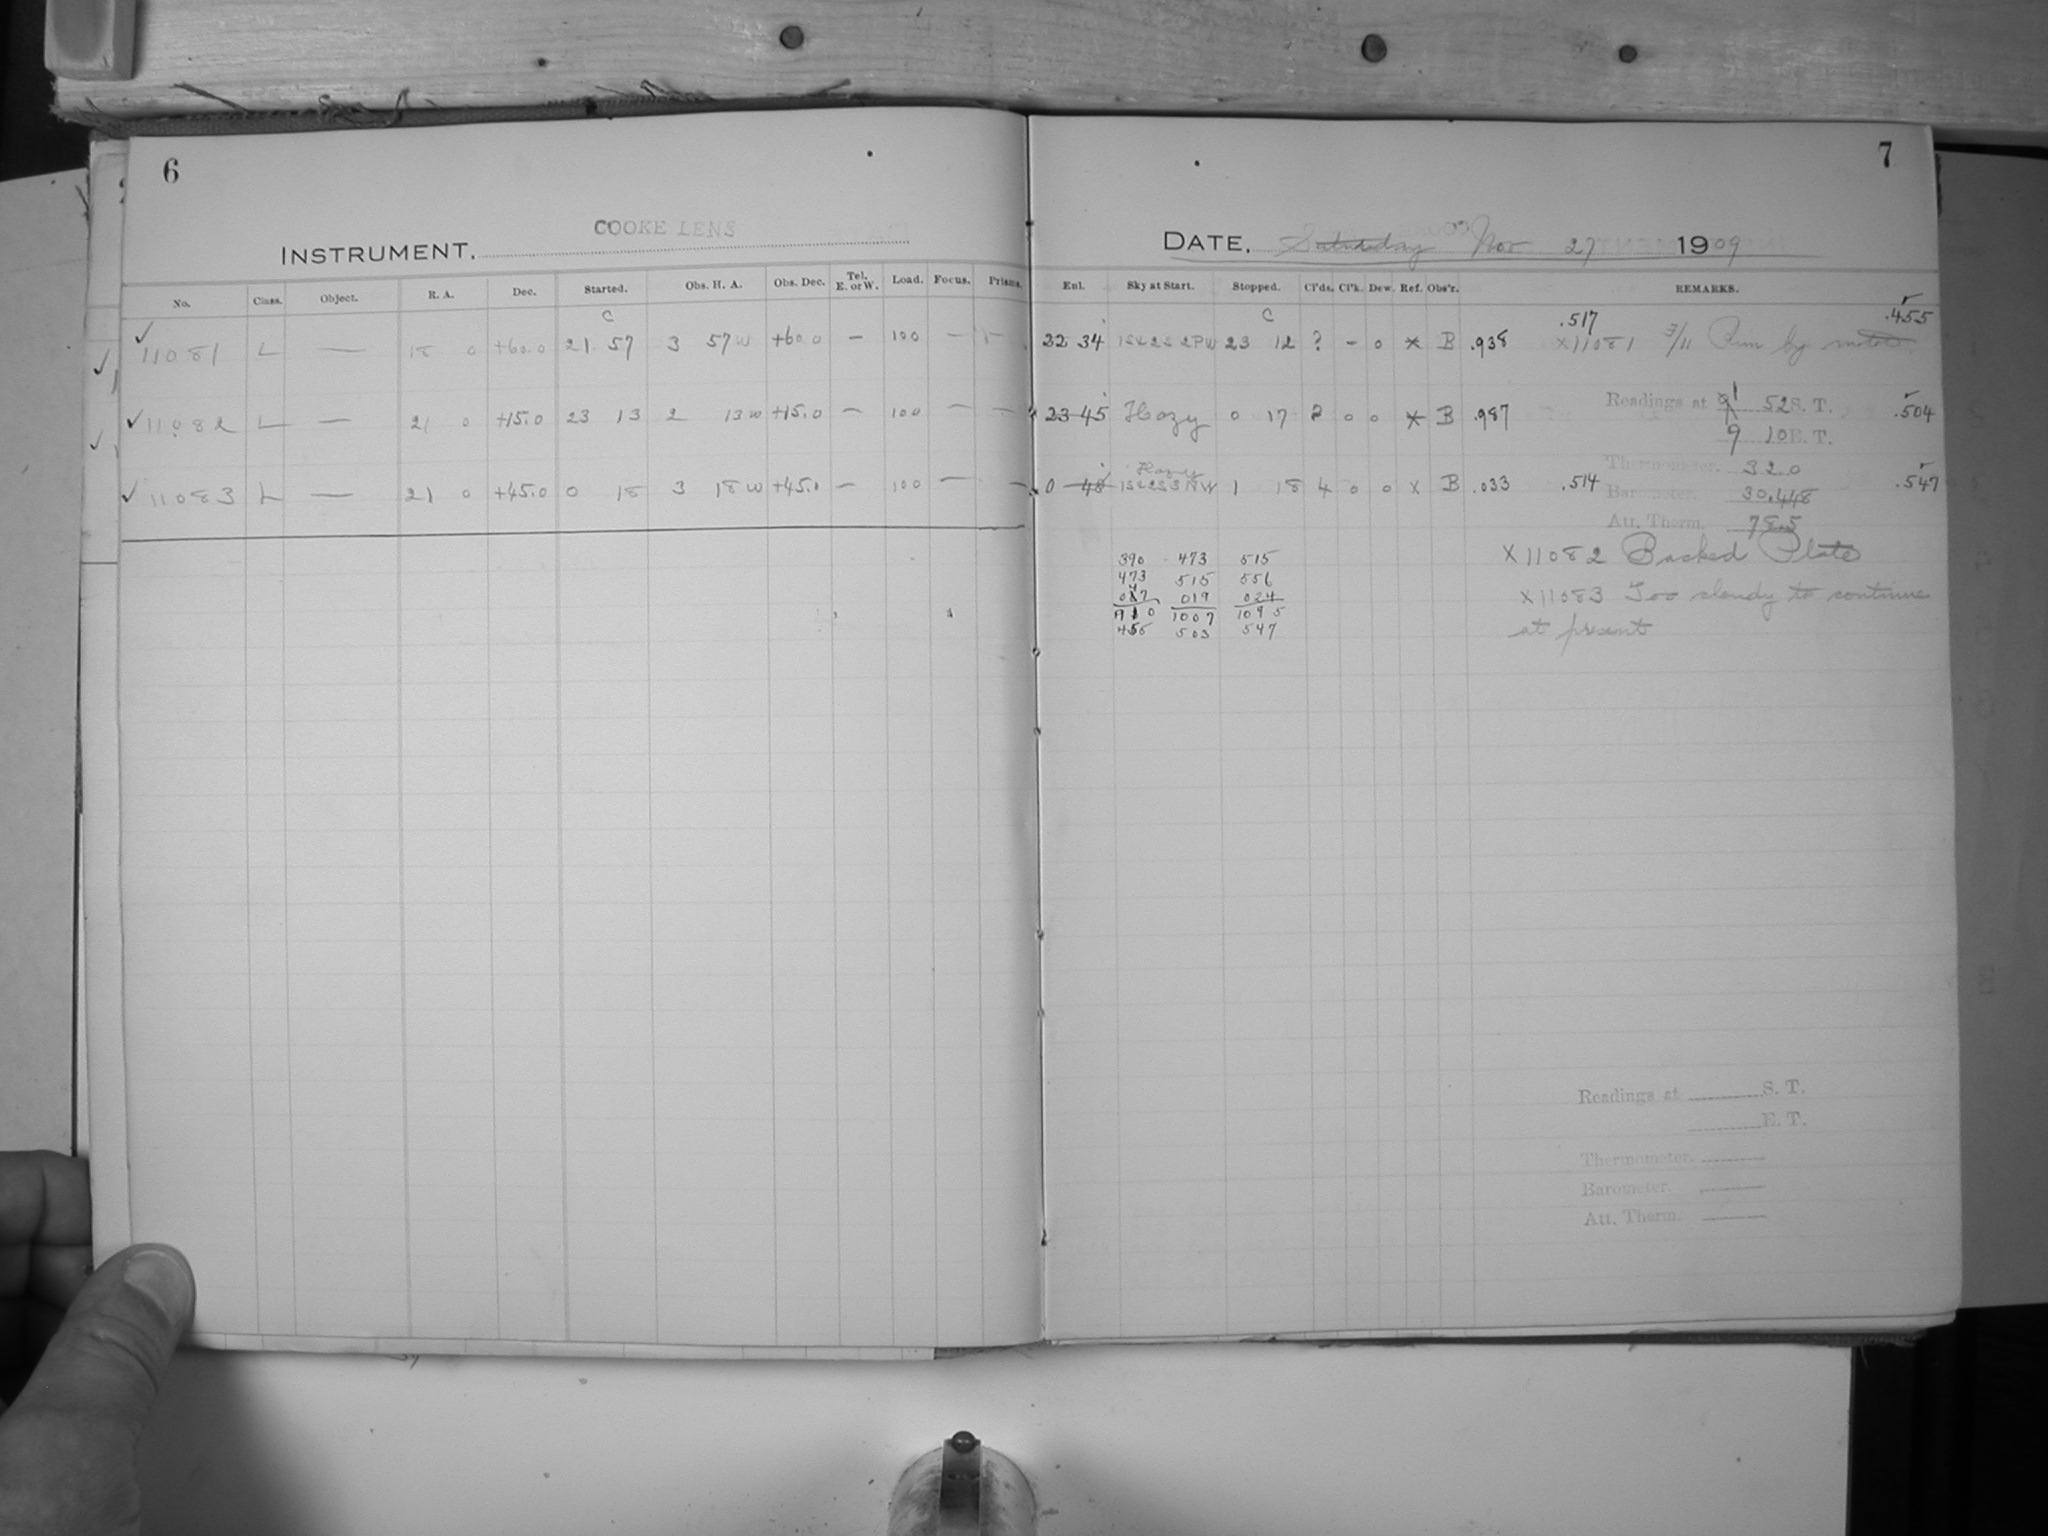 6
COOKE LENS
INSTRUMENT.
No. Class. Object. R. A. Dec. Started. Obs. H. A. Obs. Dec. Tel. E. or W. Load. Focus. Prisms.
C
✓ 11081 L — 18 0 +60.0 21 57 3 57 W +60.0 — 100 — —
✓ 11082 L — 21 0 +15.0 23 13 2 13 W +15.0 — 100 — —
✓ 11083 L — 21 0 +45.0 0 18 3 18 W +45.0 — 100 — —
7
DATE, Saturday Nov 27 1909
Enl. Sky at Start. Stopped. Cl'ds. Cl'k. Dew. Ref. Obs'r. REMARKS.
C .517 .455
22 34 1S&2S 2PW 23 12 ? – 0 * B .938 X11081 Run by
Readings at 1 52 S. T.
23 45 Hazy 0 17 2 0 0 * B .987 .504
9 10 E. T.
Thermometer. 32.0
Hazy
0 48 1S&2S 3PW 1 18 4 0 0 x B .033 .514 .547
Barometer. 30.448
Att. Therm. 78.5
390 473 515
473 515 556
047 019 024
910 1007 1095
455 503 547
X11082 Backed Plate
X11083 Too cloudy to continue
at present
Readings at S. T.
E. T.
Thermometer.
Barometer.
Att. Therm.